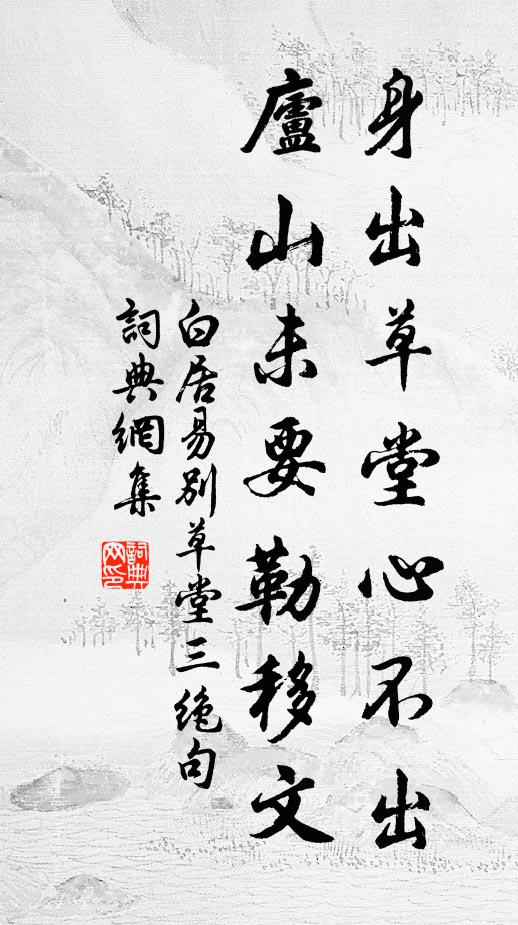 身出草堂心不出
廬山未要勒移文
白居易別草堂三絶句
詞典網集
詞典网印